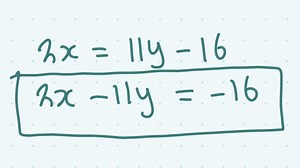 2x = 11y - 16
2x - 11y = -16